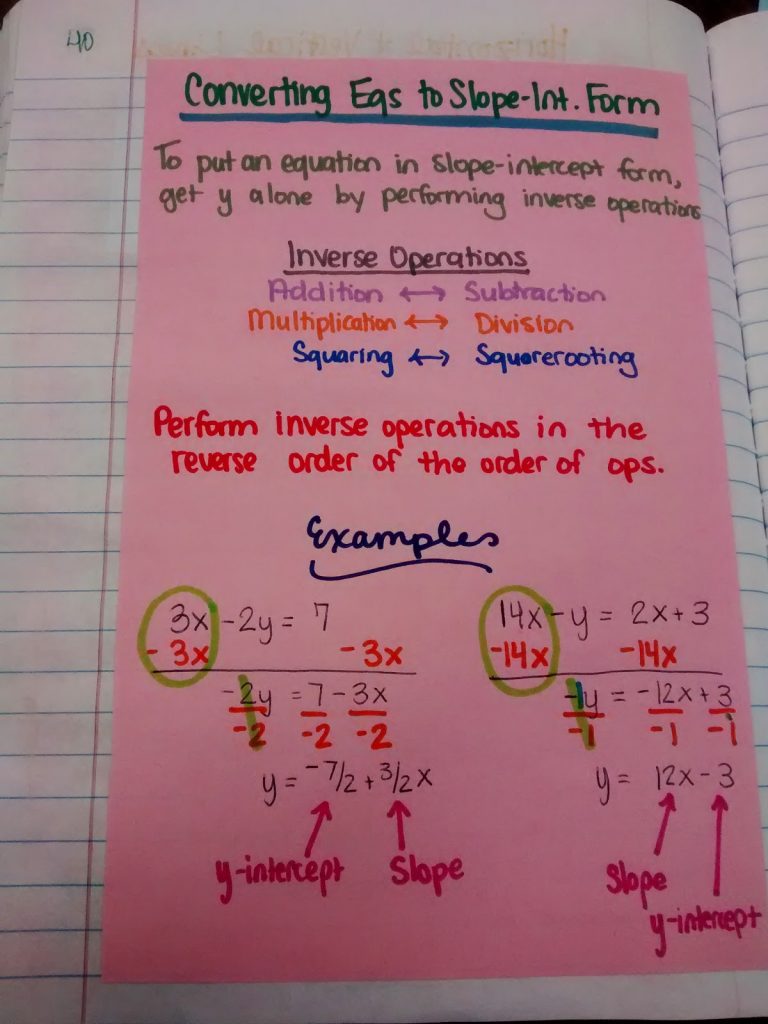 40
Converting Eqs to Slope-Int. Form
To put an equation in slope-intercept form,
get y alone by performing inverse operations
Inverse Operations
Addition ↔ Subtraction
Multiplication ↔ Division
Squaring ↔ Squarerooting
Perform inverse operations in the
reverse order of the order of ops.
Examples
3x - 2y = 7
- 3x - 3x
-2y = 7 - 3x
-2 -2 -2
y = -7/2 + 3/2 x
y-intercept Slope
14x - y = 2x + 3
-14x -14x
-1y = -12x + 3
-1 -1 -1
y = 12x - 3
Slope
y-intercept